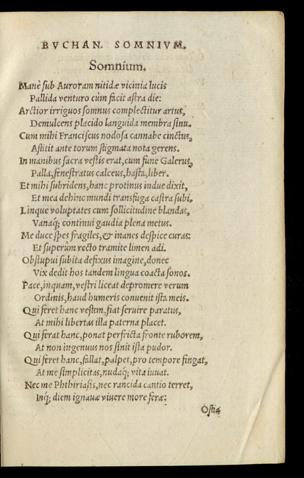 BVCHAN. SOMNIVM.
Somnium.
Manè sub Auroram nitidæ vicinia lucis
Pallida venturo cùm facit astra die:
Arctior irriguos somnus complectitur artus,
Demulcens placido languida membra sinu.
Cum mihi Franciscus nodosa cannabe cinctus,
Astitit ante torum stigmata nota gerens.
In manibus sacra vestis erat, cum fune Galerus,
Palla, fenestratus calceus, hasta, liber.
Et mihi subridens, hanc protinus indue dixit,
Et mea dehinc mundi transfuga castra subi.
Linque voluptates cum sollicitudine blandas,
Vanaq; continui gaudia plena metus.
Me duce spes fragiles, & inanes despice curas:
Et superûm recto tramite limen adi.
Obstupui subita defixus imagine, donec
Vix dedit hos tandem lingua coacta sonos.
Pace, inquam, vestri liceat depromere verum
Ordinis, haud humeris conuenit ista meis.
Qui feret hanc vestem, fiat seruire paratus,
At mihi libertas illa paterna placet.
Qui ferat hanc, ponat perfricta fronte ruborem,
At non ingenuus nos sinit ista pudor.
Qui feret hanc, fallat, palpet, pro tempore fingat,
At me simplicitas, nudaq; vita iuuat.
Nec me Phthiriasis, nec rancida cantio terret,
Inq; diem ignauæ viuere more feræ:
Ostia